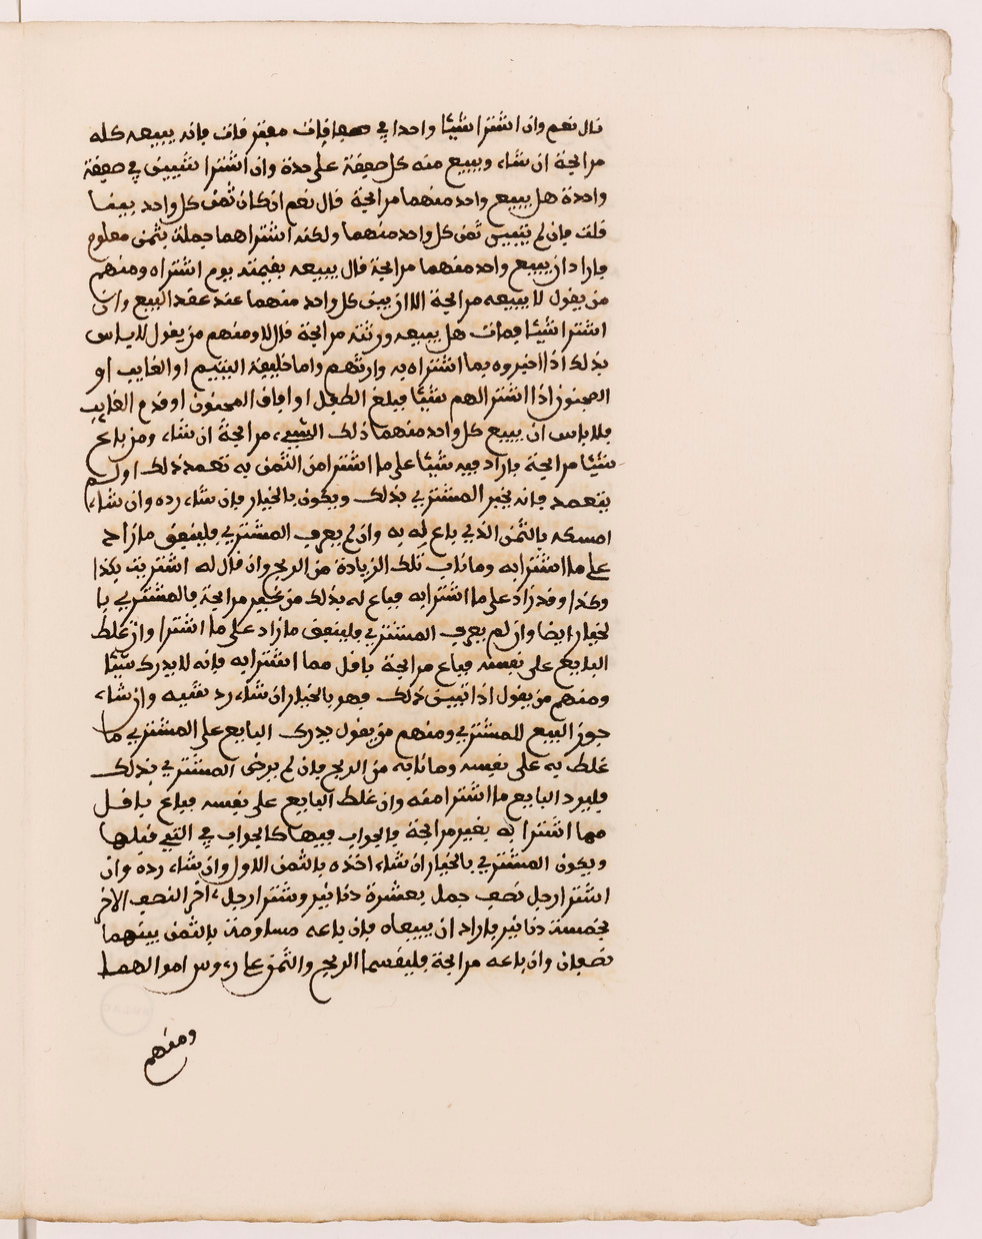 قال نعم وان اشترا شيئا واحدا في صفقات مفترقات فانه يبيعه كله
مرابحة ان شاء ويبيع منه كل صفقة على حدة وان اشترا شيئين في صفقة
واحدة هل يبيع واحد منهما مرابحة قال نعم ان كان ثمن كل واحد بينا
قلت فان لم يتبين ثمن كل واحد منهما ولكنه اشتراهما جملة بثمن معلوم
فاراد ان يبيع واحد منهما مرابحة قال يبيعه بقيمته يوم اشتراه ومنهم
من يقول لا يبيعه مرابحة الا ان يبين كل واحد منهما عند عقد البيع وان
اشترا شيئا فمات هل يبيعه ورثته مرابحة قال لا ومنهم من يقول لا باس
بذلك اذا اخبروه بما اشتراه به وارثهم واما خليفة اليتيم او الغايب او
المجنون اذا اشترا لهم شيئا فبلغ الطفل او افاق المجنون او قدم الغايب
فلا باس ان يبيع كل واحد منهما ذلك الشيء مرابحة ان شاء ومن باع
شيئا مرابحة فزاد فيه شيئا على ما اشترا من الثمن به تعمد ذلك او لم
يتعمد فانه يخبر المشتري بذلك ويكون بالخيار فان شاء رده وان شاء
امسكه بالثمن الذي باع له به وان لم يعرف المشتري فلينفق ما زاد
على ما اشترا به وما ناب تلك الزيادة من الربح وان قال له اشتريت بكذا
وكذا وقد زاد على ما اشترا به فباع له بذلك من غير مرابحة فالمشتري با
لخيار ايضا وان لم يعرف المشتري فلينفق ما زاد على ما اشترا وان غلط
البايع على نفسه فباع مرابحة باقل مما اشترا به فانه لا يدرك شيئا
ومنهم من يقول اذا تبين ذلك فهو بالخيار ان شاء رد شيه وان شاء
جوز البيع للمشتري ومنهم من يقول يدرك البايع على المشتري ما
غلط به على نفسه وما نابه من الربح فان لم يرض المشتري بذلك
فليرد البايع ما اشترا منه وان غلط البايع على نفسه فباع باقل
مما اشترا به بغير مرابحة فالجواب فيها كالجواب في التي قبلها
ويكون المشتري بالخيار ان شاء اخذه بالثمن الاول وان شاء رده وان
اشترا رجل نصف جمل بعشرة دنانير وشترا رجل ءاخر النصف الاخر
بخمسة دنانير فاراد ان يبيعاه فان باعه مساومة بالثمن بينهما
نصفان وان باعه مرابحة فليقسما الربح والثمن على رءوس اموالهما
ومنهم